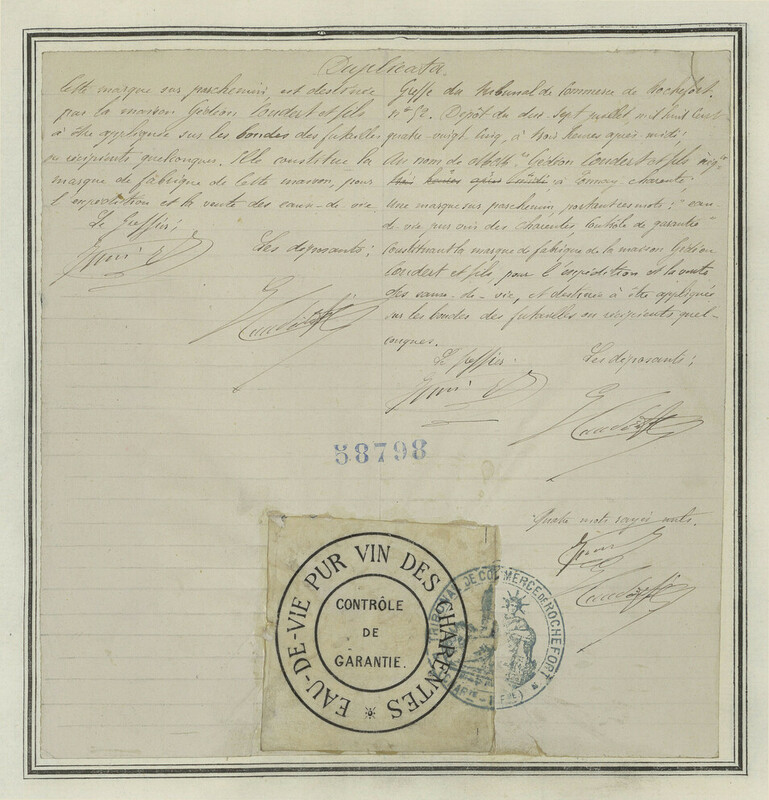 Duplicata.
Cette marque sur parchemin, est destinée
par la maison Gédéon Coudert et fils
à être appliquée sur les bondes des futailles
ou récipients quelconques. Elle constitue la
marque de fabrique de cette maison, pour
l'expédition et la vente des eaux-de-vie.
Le Greffier;
Les déposants;
Greffe du tribunal de Commerce de Rochefort.
n° 52. Dépôt du dix-sept juillet, mil huit cent
quatre-vingt cinq, à trois heures après-midi;
Au nom de "Gédéon Coudert et fils
trois heures après midi à Tonnay-Charente.
Une marque sur parchemin, portant ces mots; "eau-
de-vie pur vin des Charentes, Contrôle de garantie"
Constituant la marque de fabrique de la maison Gédéon
Coudert et fils, pour l'expédition et la vente
des eaux-de-vie, et destinée à être appliquée
sur les bondes des futailles ou récipients quel-
conques.
Le Greffier.
Les déposants;
58798
Quatre mots rayés nuls.
EAU-DE-VIE PUR VIN DES CHARENTES
CONTRÔLE
DE
GARANTIE.
TRIBUNAL DE COMMERCE DE ROCHEFORT